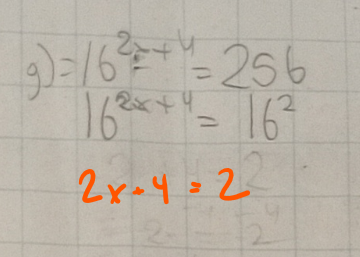 g) = 16^{2x+4} = 256
16^{2x+4} = 16^2
2x+4 = 2